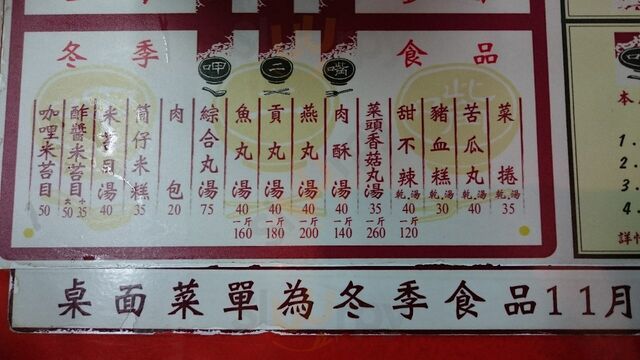 冬季 呷二嘴 食品
咖哩米苔目 50
酢醬米苔目 大50 小35
米苔目湯 40
筒仔米糕 35
肉包 20
綜合丸湯 75
魚丸湯 40 一斤160
貢丸湯 40 一斤180
燕丸湯 40 一斤200
肉酥湯 40 一斤140
菜頭香菇丸湯 35 一斤260
甜不辣 40 一斤120
豬血糕 乾,湯 30
苦瓜丸 乾,湯 40
菜捲 乾,湯 35
桌面菜單為冬季食品11月
本
1.
2.
3.
4.